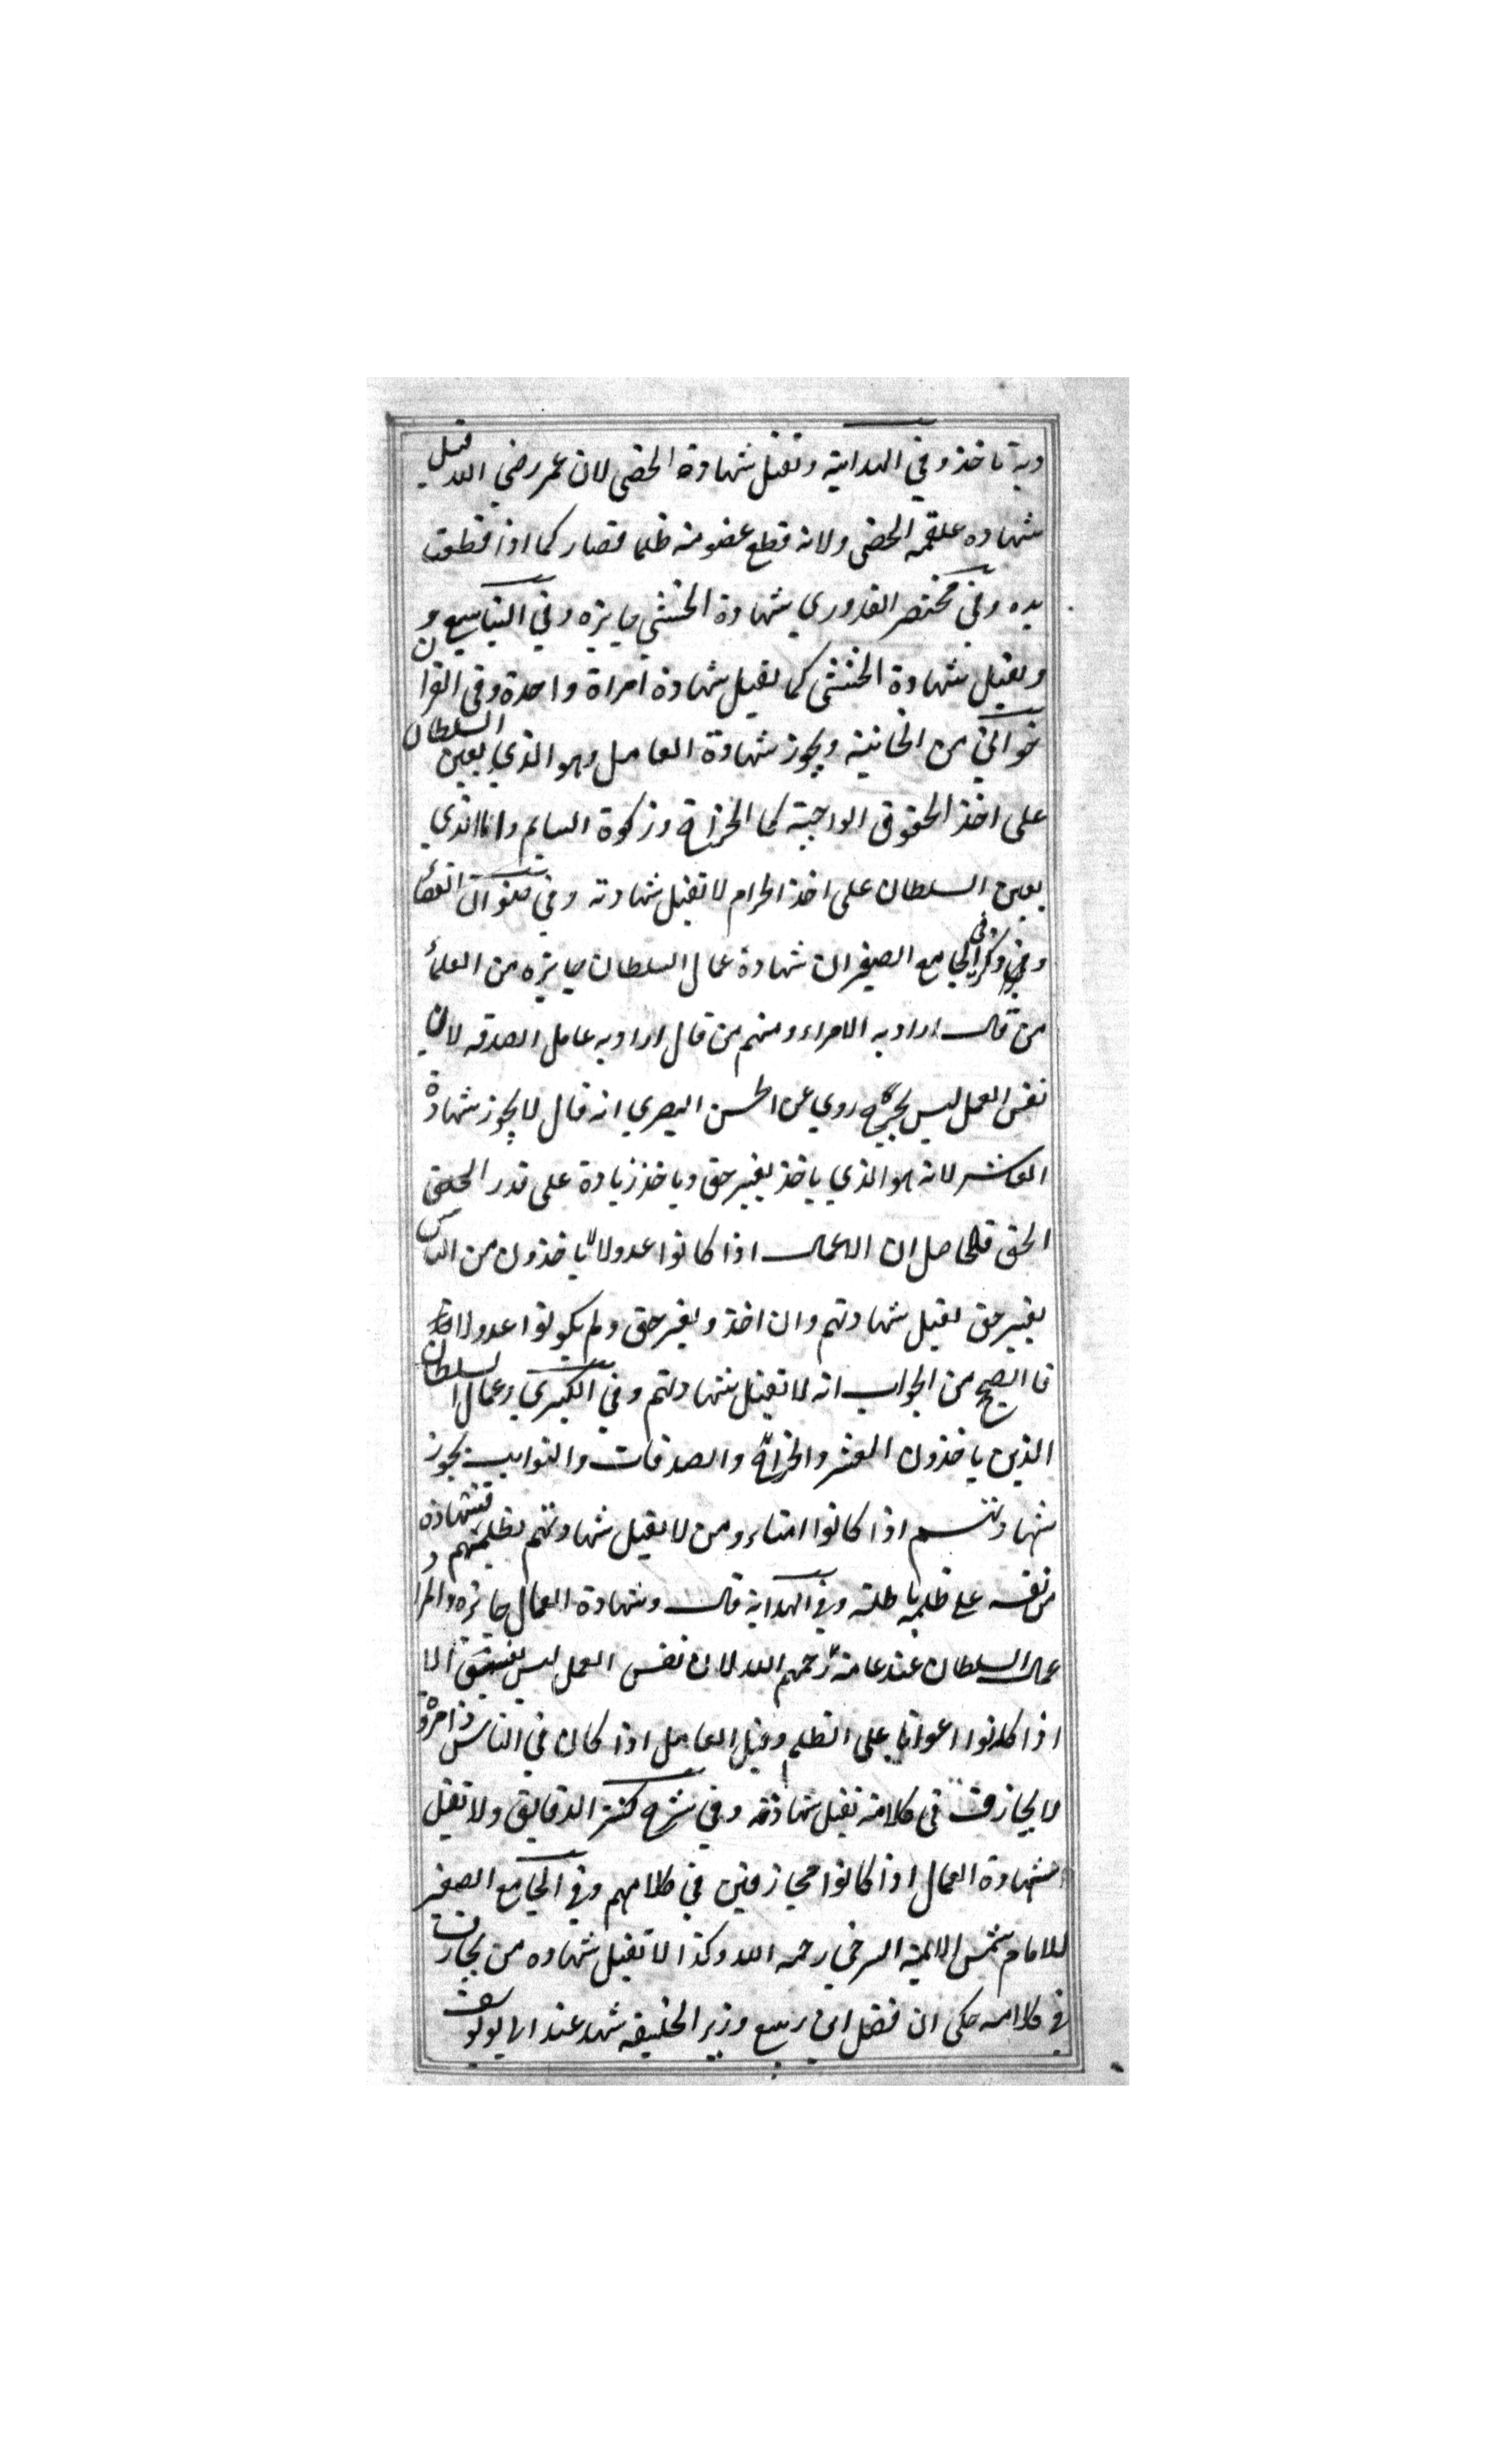 وبه ناخذ وفي الهداية وتقبل شهادة الخصى لان عمر رضي الله قبل
شهاده علقمه الخصى ولانه قطع عضو منه ظلما فصار كما اذا قطعت
يده وفي مختصر القدوري شهادة الخنثى جايزه وفي الينابيع و
وتقبل شهادة الخنثى كما تقبل شهادة امراة واحدة وفي القران
خواني من الخانية ويجوز شهادة العامل وهو الذي يعين السلطان
على اخذ الحقوق الواجبة كما الخراج وزكوة السايم واما الذي
يعين السلطان على اخذ الحرام لا تقبل شهادته وفي القضا
وفي وذكر في الجامع الصغير ان شهادة عمال السلطان جايزه من العلماء
من قال اراد به الامراء ومنهم من قال اراد به عامل الصدقه لان
نفس العمل ليس بجرح روي عن الحسن البصري انه قال لا يجوز شهادة
العاشر لانه هو الذي ياخذ بغير حق وياخذ زيادة على قدر الحق
الحق فالحاصل ان العمال اذا كانوا عدولا ياخذون من الناس
بغير حق تقبل شهادتهم وان اخذ وبغير حق ولم يكونوا عدولا
فا الصحيح من الجواب انه لا تقبل شهادتهم وفي الكبرى وعمال السلطان
الذين ياخذون العشر والخراج والصدقات والنوايب يجوز
شهادتهم اذا كانوا امناء ومن لا يقبل شهادتهم لظلمهم فشهادة
من نفسه على ظلمه باطلة وفي الهداية قال وشهادة العمال جايزه والمراد
عمال السلطان عند عامة رحمهم الله لان نفس العمل ليس بفسق الا
اذا كانوا اعوانا على الظلم وقيل العامل اذا كان في الناس ذا مروة
لا يجازف في كلامه تقبل شهادته وفي شرح كنز الدقايق ولا تقبل
شهادة العمال اذا كانوا مجازفين في كلامهم وفي الجامع الصغير
للامام شمس الايمة السرخي رحمه الله وكذا لا تقبل شهاده من يجازف
في كلامه حكى ان فضل ابن ربيع وزير الخليفه شهد عند ابا يوسف